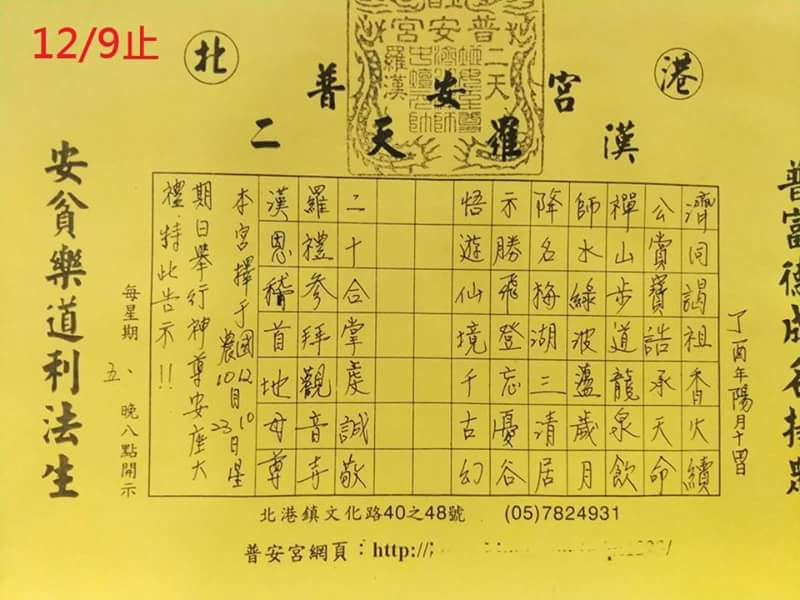 12/9止
北 港
普安宮
二天羅漢
普富德成名持眾
丁酉年陽月十四日
濟同謁祖香火續
公賞寶誥承天命
禪山步道龍泉飲
師水綠波蘯歲月
降名梅湖三清居
示勝飛登忘憂谷
悟遊仙境千古幻
二十合掌虔誠敬
羅禮參拜觀音寺
漢恩稽首地母尊
本宮擇于國12月10日星
農10月23
期日舉行神尊安座大
禮.特此告示!!
每星期五、晚八點開示
安貧樂道利法生
北港鎮文化路40之48號 (05)7824931
普安宮網頁：http://